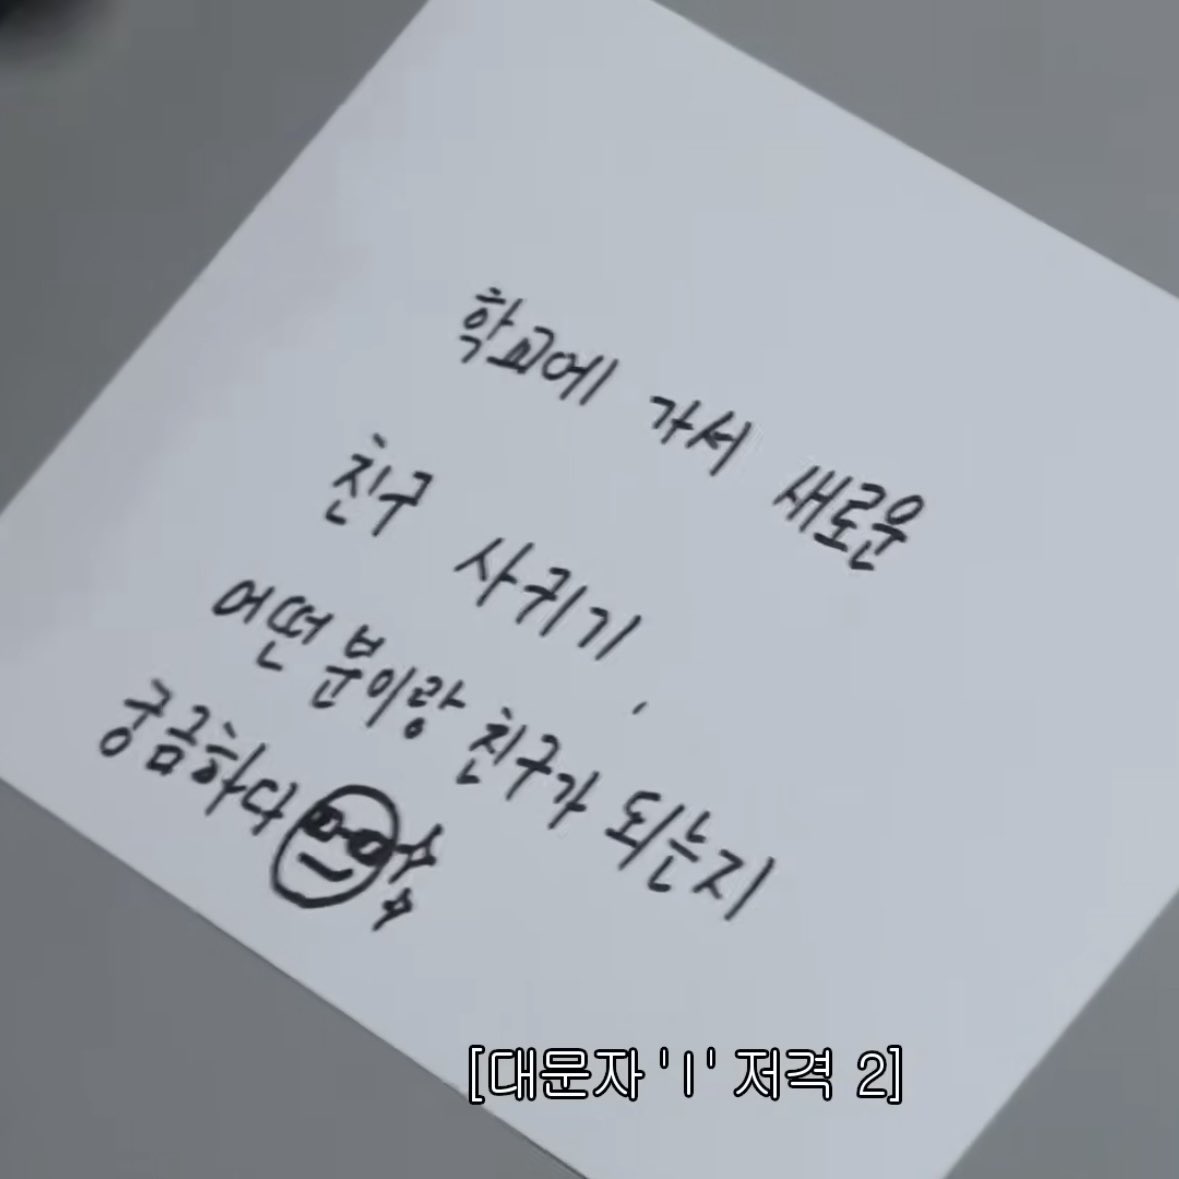 학교에 가서 새로운
친구 사귀기,
어떤 분이랑 친구가 되는지
궁금하다
[대문자 'I' 저격 2]